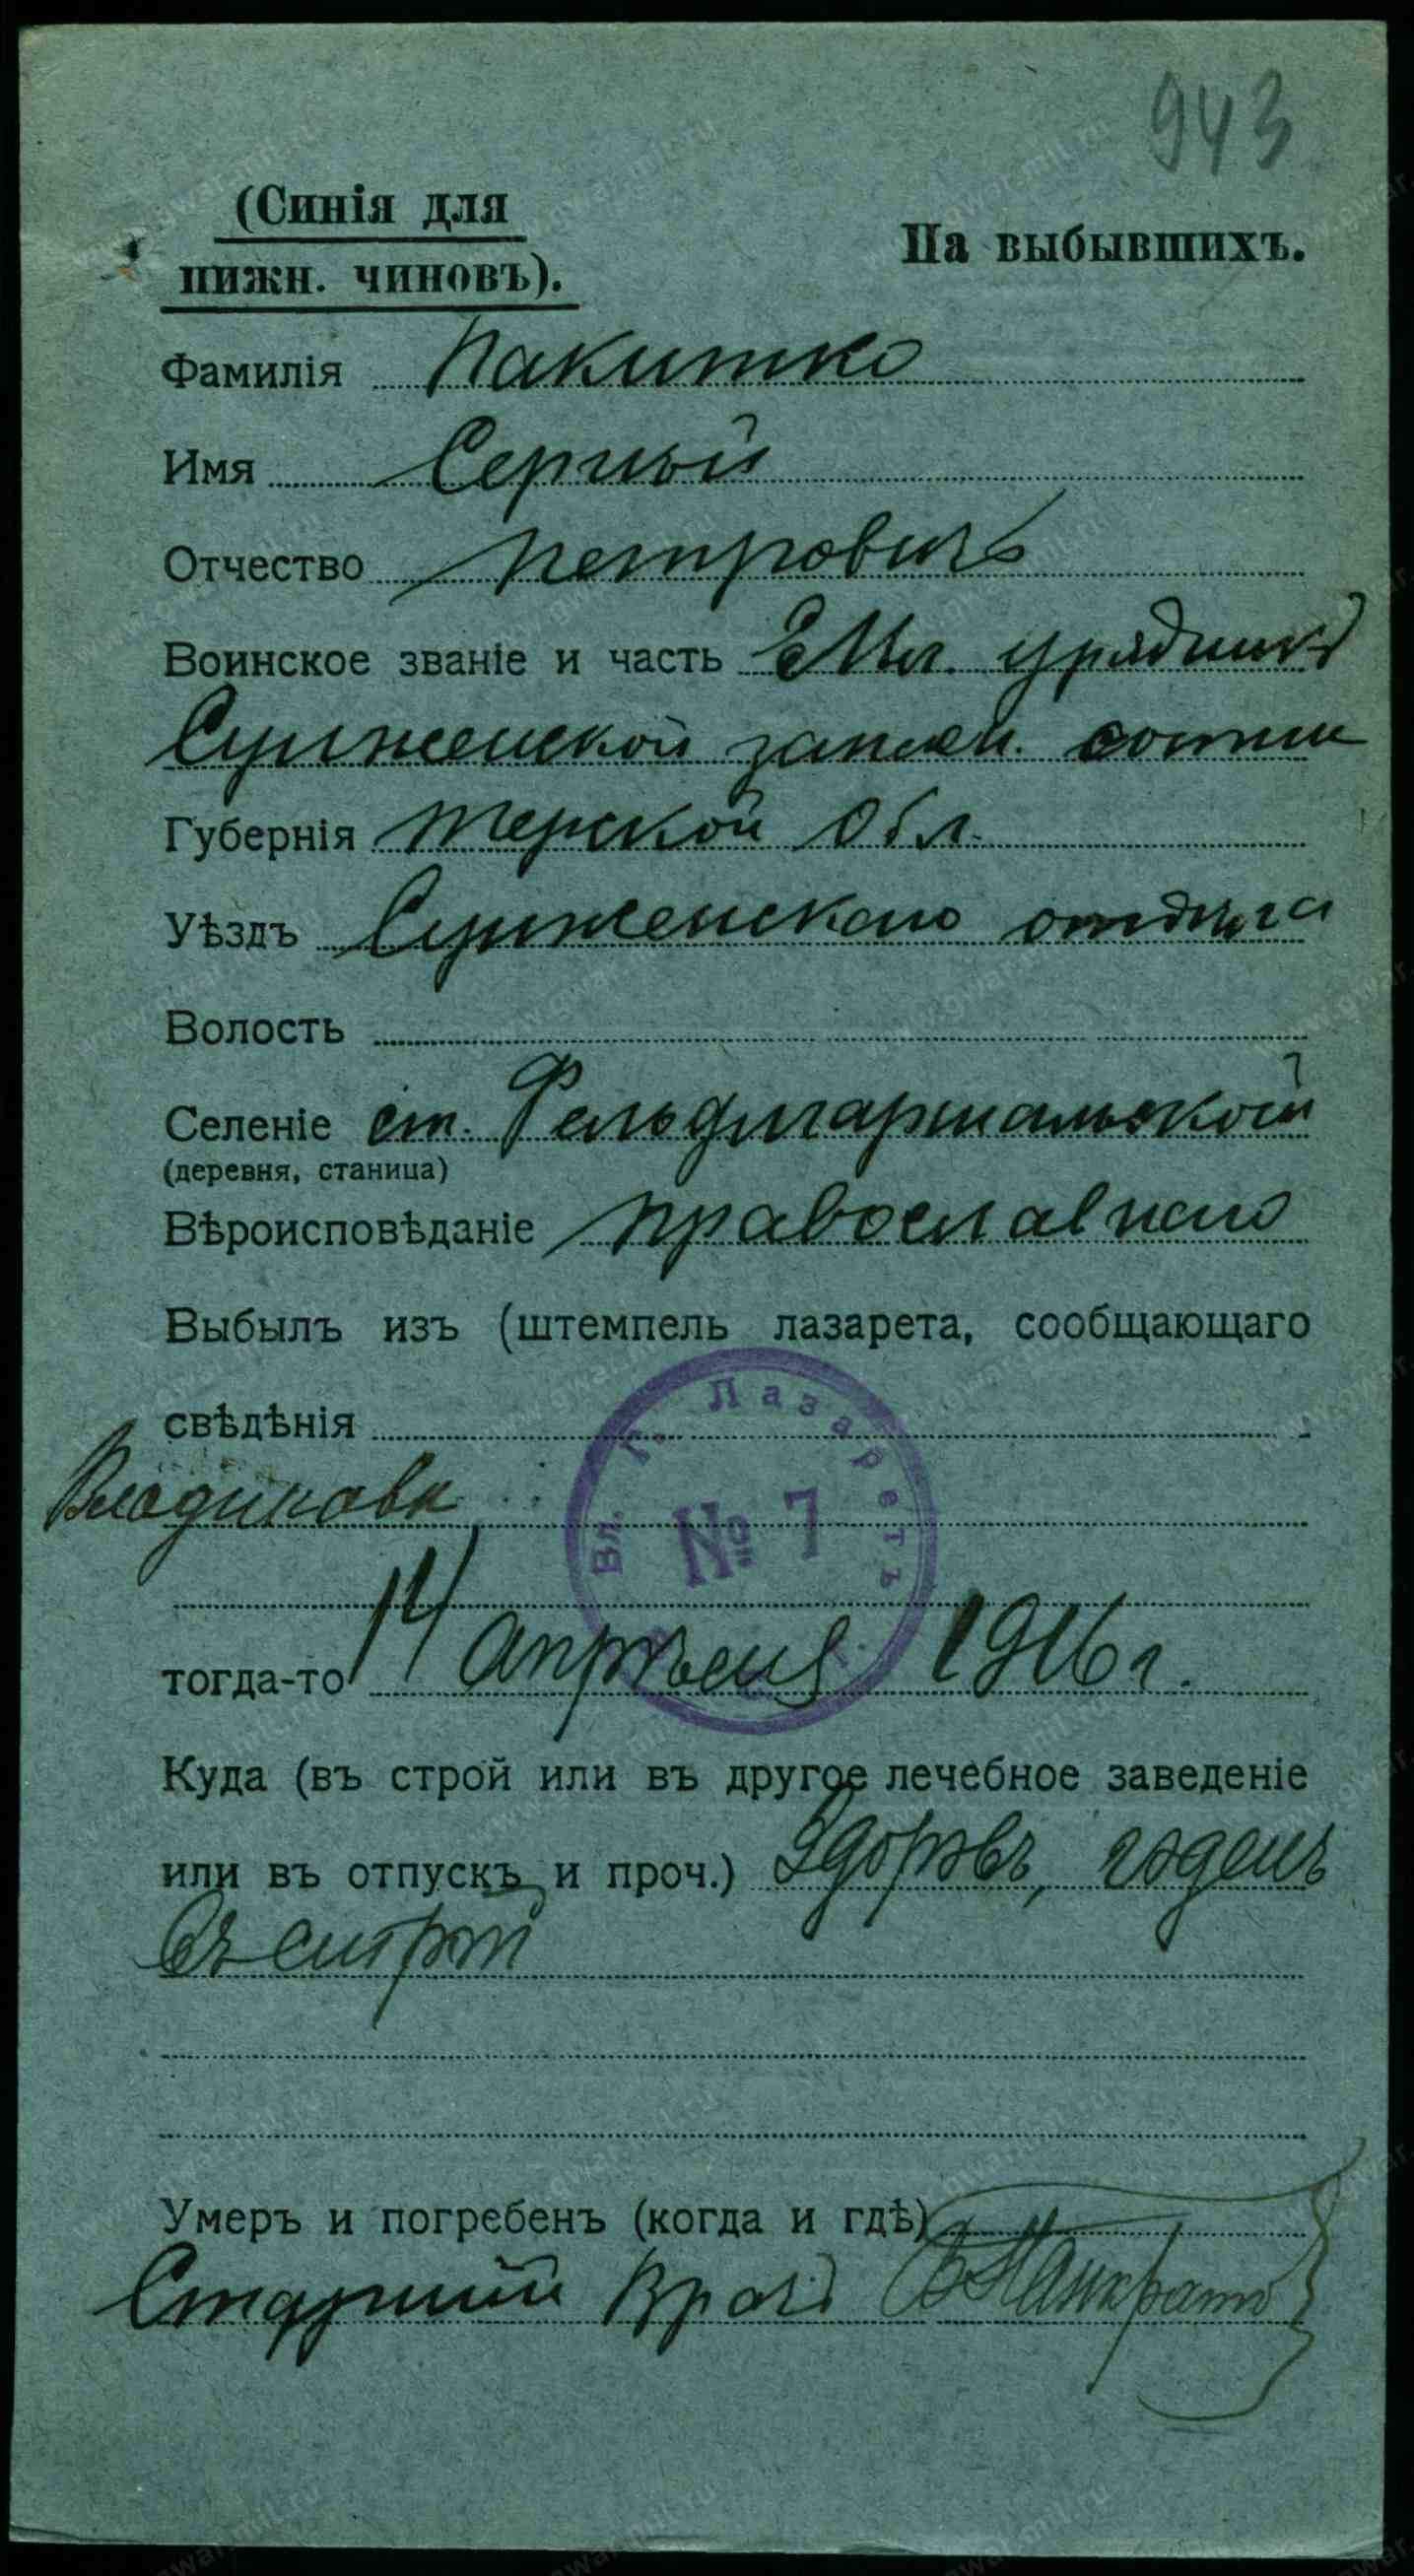 943
(Синія для
нижн. чиновъ).
На выбывшихъ.
Фамилія Пакитко
Имя Сергѣй
Отчество Петровичъ
Воинское званіе и часть Мл. урядникъ
Сунженской запасн. сотни
Губернія Терской Обл.
Уѣздъ Сунженскаго отдѣла
Волость
Селеніе ст. Фельдмаршальской
(деревня, станица)
Вѣроисповѣданіе православнаго
Выбылъ изъ (штемпель лазарета, сообщающаго
свѣдѣнія
Вл. Г. Лазаретъ
№ 7
Владикавк
тогда-то 14 апрѣля 1916 г.
Куда (въ строй или въ другое лечебное заведеніе
или въ отпускъ и проч.) Здоровъ, годенъ
въ строй
Умеръ и погребенъ (когда и гдѣ)
Старшій Врачъ